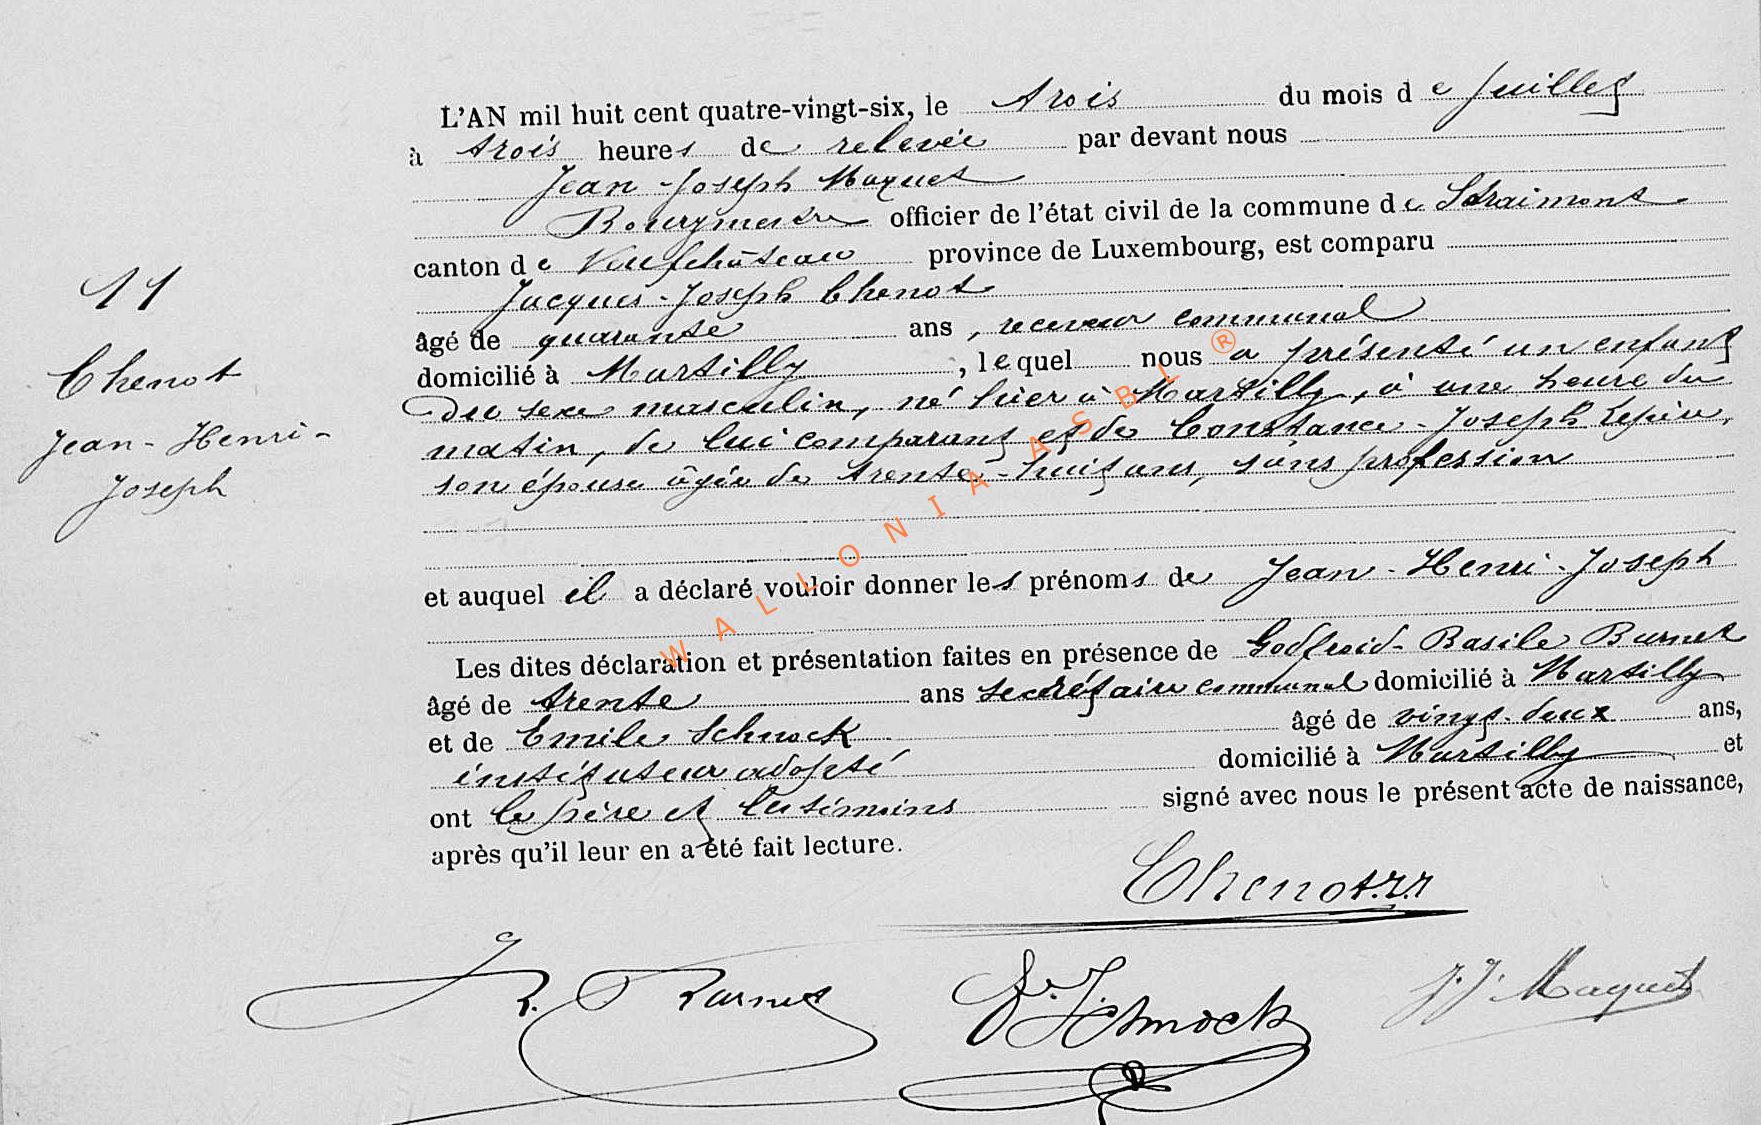 L'AN mil huit cent quatre-vingt-six, le trois du mois de juillet
à trois heures de relevée par devant nous
Jean-Joseph Maquet
Bourgmestre officier de l'état civil de la commune de Straimont
canton de Neufchâteau province de Luxembourg, est comparu
11
Jacques-Joseph Chenot
âgé de quarante ans, receveur communal
Chenot
domicilié à Martilly, lequel nous a présenté un enfant
du sexe masculin, né hier à Martilly, à une heure du
Jean-Henri-
matin, de lui comparant et de Constance-Joseph
Joseph
son épouse âgée de trente-huit ans, sans profession
et auquel il a déclaré vouloir donner les prénoms de Jean-Henri-Joseph
Les dites déclaration et présentation faites en présence de Godfroid-Basile Burnet
âgé de trente ans secrétaire communal domicilié à Martilly
et de Emile Schnock âgé de vingt-deux ans,
instituteur adopté domicilié à Martilly et
ont le père et les témoins signé avec nous le présent acte de naissance,
après qu'il leur en a été fait lecture.
Chenot
Burnet
Schnock
J.J. Maquet
WALLONIA ASBL ®